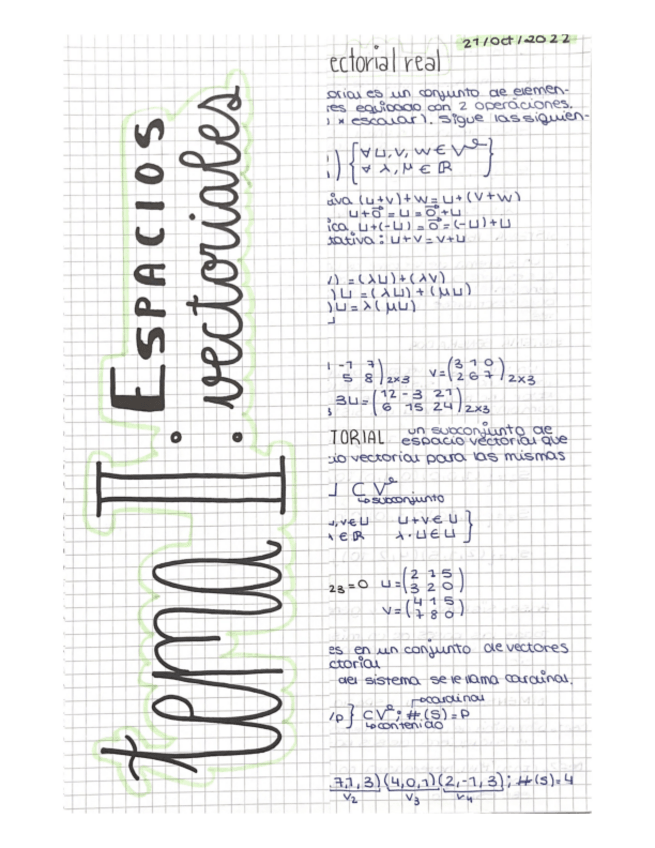 tema I: ESPACIOS vectoriales
21/Oct/2022
ectorial real
orial es un conjunto de elemen-
res equipado con 2 operaciones.
x escalar). Sigue las siguien-
) { ∀ u, v, w ∈ Vᵉ }
∀ λ, μ ∈ ℝ
iva (u+v)+w = u+(v+w)
u+0⃗ = u = 0⃗+u
ica u+(-u) = 0⃗ = (-u)+u
tativa: u+v = v+u
) = (λu)+(λv)
)u = (λu)+(μu)
)u = λ(μu)
-1 7
5 8 )2x3 v=(3 1 0
2 6 7)2x3
3u=(12 -3 21
6 15 24)2x3
TORIAL un subconjunto de
espacio vectorial que
io vectorial para las mismas
⊂ Vᵉ
↳subconjunto
u,v∈U u+v∈U
∈ℝ λ·u∈U }
23=0 u=(2 1 5
3 2 0)
v=(4 1 5
7 8 0)
es en un conjunto de vectores
ctorial
del sistema se le llama cardinal.
→cardinal
} ⊂Vᵉ; #(S)=p
↳contenido
7,1,3)(4,0,1)(2,-1,3); #(S)=4
v₂ v₃ v₄